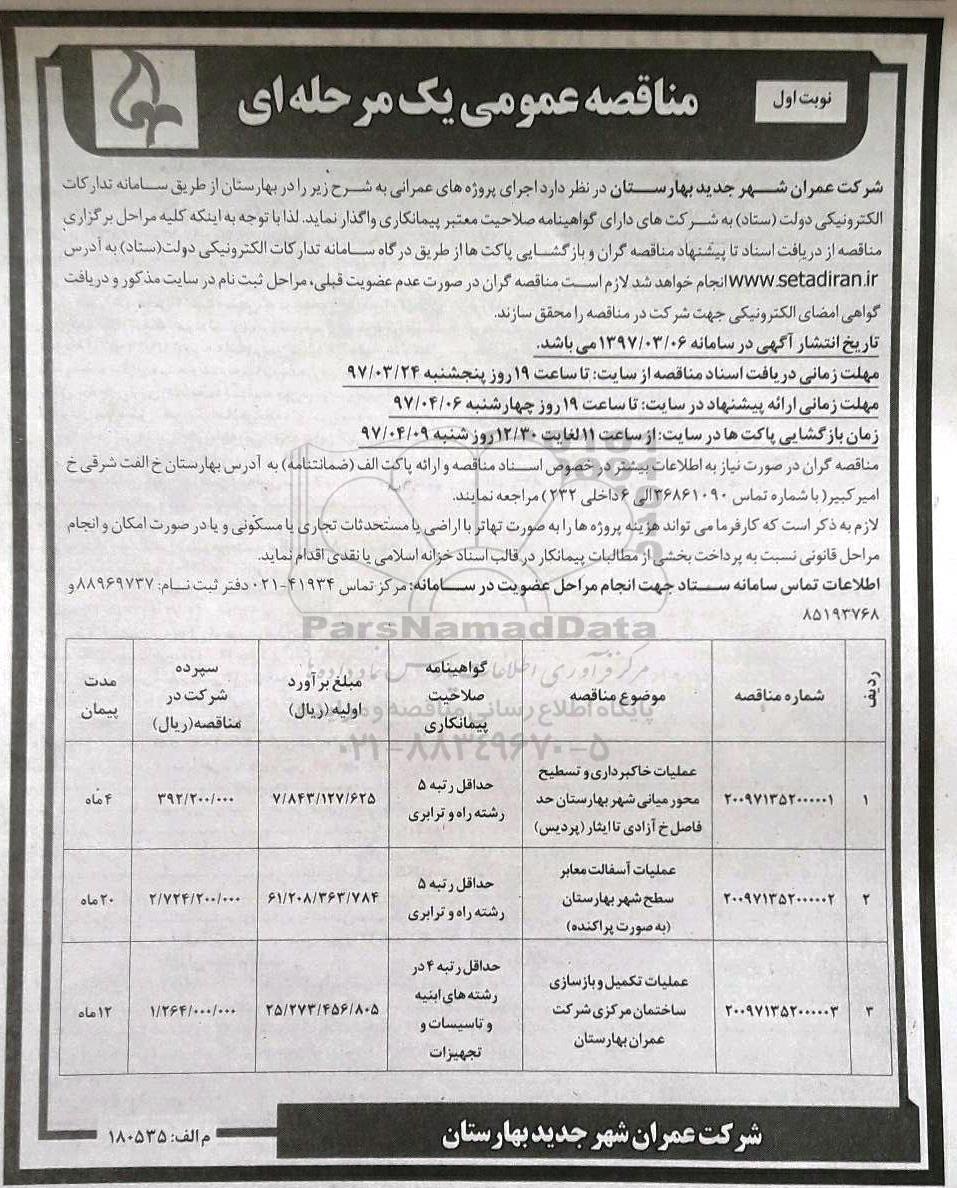 نوبت اول
مناقصه عمومی یک مرحله ای
شرکت عمران شهر جدید بهارستان در نظر دارد اجرای پروژه های عمرانی به شرح زیر را در بهارستان از طریق سامانه تدارکات
الکترونیکی دولت (ستاد) به شرکت های دارای گواهینامه صلاحیت معتبر پیمانکاری واگذار نماید. لذا با توجه به اینکه کلیه مراحل برگزاری
مناقصه از دریافت اسناد تا پیشنهاد مناقصه گران و بازگشایی پاکت ها از طریق درگاه سامانه تدارکات الکترونیکی دولت(ستاد) به آدرس
www.setadiran.ir انجام خواهد شد لازم است مناقصه گران در صورت عدم عضویت قبلی، مراحل ثبت نام در سایت مذکور و دریافت
گواهی امضای الکترونیکی جهت شرکت در مناقصه را محقق سازند.
تاریخ انتشار آگهی در سامانه ۱۳۹۷/۰۳/۰۶ می باشد.
مهلت زمانی دریافت اسناد مناقصه از سایت: تا ساعت ۱۹ روز پنجشنبه ۹۷/۰۳/۲۴
مهلت زمانی ارائه پیشنهاد در سایت: تا ساعت ۱۹ روز چهارشنبه ۹۷/۰۴/۰۶
زمان بازگشایی پاکت ها در سایت: از ساعت ۱۱ لغایت ۱۲/۳۰ روز شنبه ۹۷/۰۴/۰۹
مناقصه گران در صورت نیاز به اطلاعات بیشتر در خصوص اسناد مناقصه و ارائه پاکت الف (ضمانتنامه) به آدرس بهارستان خ الفت شرقی خ
امیرکبیر( با شماره تماس ۳۶۸۶۱۰۹۰ الی ۶ داخلی ۲۳۲) مراجعه نمایند.
لازم به ذکر است که کارفرما می تواند هزینه پروژه ها را به صورت تهاتر با اراضی یا مستحدثات تجاری یا مسکونی و یا در صورت امکان و انجام
مراحل قانونی نسبت به پرداخت بخشی از مطالبات پیمانکار در قالب اسناد خزانه اسلامی یا نقدی اقدام نماید.
اطلاعات تماس سامانه ستاد جهت انجام مراحل عضویت در سامانه: مرکز تماس ۴۱۹۳۴-۰۲۱ دفتر ثبت نام: ۸۸۹۶۹۷۳۷ و
۸۵۱۹۳۷۶۸
ParsNamadData
پایگاه اطلاع رسانی مناقصه و مزایده
۰۲۱-۸۸۳۴۹۶۷۰-۵
ردیف
شماره مناقصه
موضوع مناقصه
گواهینامه
صلاحیت
پیمانکاری
مبلغ برآورد
اولیه (ریال)
سپرده
شرکت در
مناقصه(ریال)
مدت
پیمان
۱
۲۰۰۹۷۱۳۵۲۰۰۰۰۰۱
عملیات خاکبرداری و تسطیح
محور میانی شهر بهارستان حد
فاصل خ آزادی تا ایثار (پردیس)
حداقل رتبه ۵
رشته راه و ترابری
۷/۸۴۳/۱۲۷/۶۲۵
۳۹۲/۲۰۰/۰۰۰
۴ ماه
۲
۲۰۰۹۷۱۳۵۲۰۰۰۰۰۲
عملیات آسفالت معابر
سطح شهر بهارستان
(به صورت پراکنده)
حداقل رتبه ۵
رشته راه و ترابری
۶۱/۲۰۸/۳۶۳/۷۸۴
۲/۷۲۴/۲۰۰/۰۰۰
۲۰ ماه
۳
۲۰۰۹۷۱۳۵۲۰۰۰۰۰۳
عملیات تکمیل و بازسازی
ساختمان مرکزی شرکت
عمران بهارستان
حداقل رتبه ۴ در
رشته های ابنیه
و تاسیسات و
تجهیزات
۲۵/۲۷۳/۴۵۶/۸۰۵
۱/۲۶۴/۰۰۰/۰۰۰
۱۲ ماه
شرکت عمران شهر جدید بهارستان
م الف: ۱۸۰۵۳۵